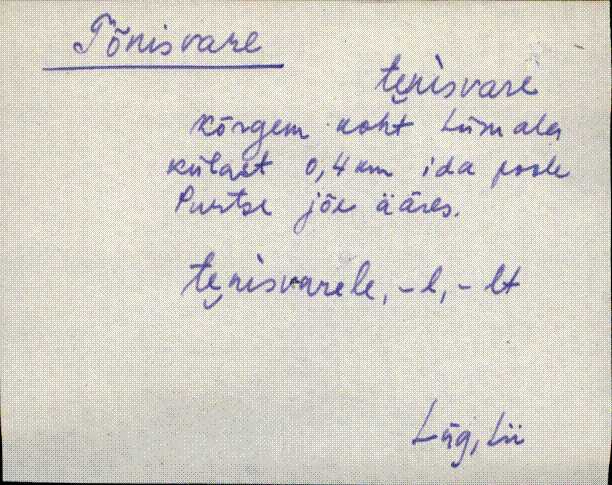 Tõnisvare
te̮nisvare
kõrgem koht Liimala
külast 0,4 km ida poole
Purtse jõe ääres.
te̮nisvarele, -l, -lt
Lüg, Lii